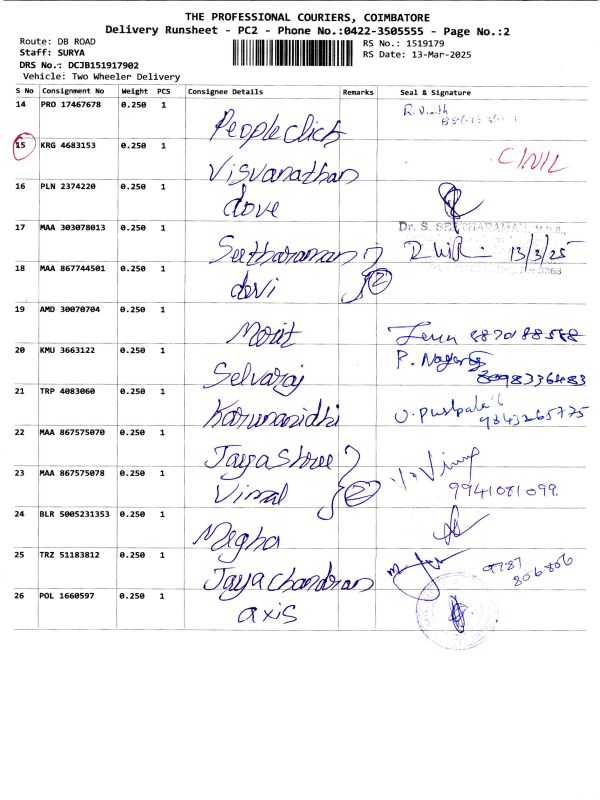 THE PROFESSIONAL COURIERS, COIMBATORE
Delivery Runsheet - PC2 - Phone No.:0422-3505555 - Page No.:2
Route: DB ROAD
Staff: SURYA
DRS No.: DCJB151917902
Vehicle: Two Wheeler Delivery
RS No.: 1519179
RS Date: 13-Mar-2025
S No Consignment No Weight PCS Consignee Details Remarks Seal & Signature
14 PRO 17467678 0.250 1 People Click
15 KRG 4683153 0.250 1 Visvanathan
16 PLN 2374220 0.250 1 dove
17 MAA 303078013 0.250 1 Seetharaman Dr. S. SEETHARAMAN 13/3/25
18 MAA 867744501 0.250 1 devi 2
19 AMD 30070704 0.250 1
20 KMU 3663122 0.250 1 Selvaraj
21 TRP 4083060 0.250 1 Karunanidhi 9843265775
22 MAA 867575070 0.250 1 Jayashree
23 MAA 867575078 0.250 1 Vimal 2 9941081099
24 BLR 5005231353 0.250 1 Megha
25 TRZ 51183812 0.250 1 Jayachandran 9787 806806
26 POL 1660597 0.250 1 axis